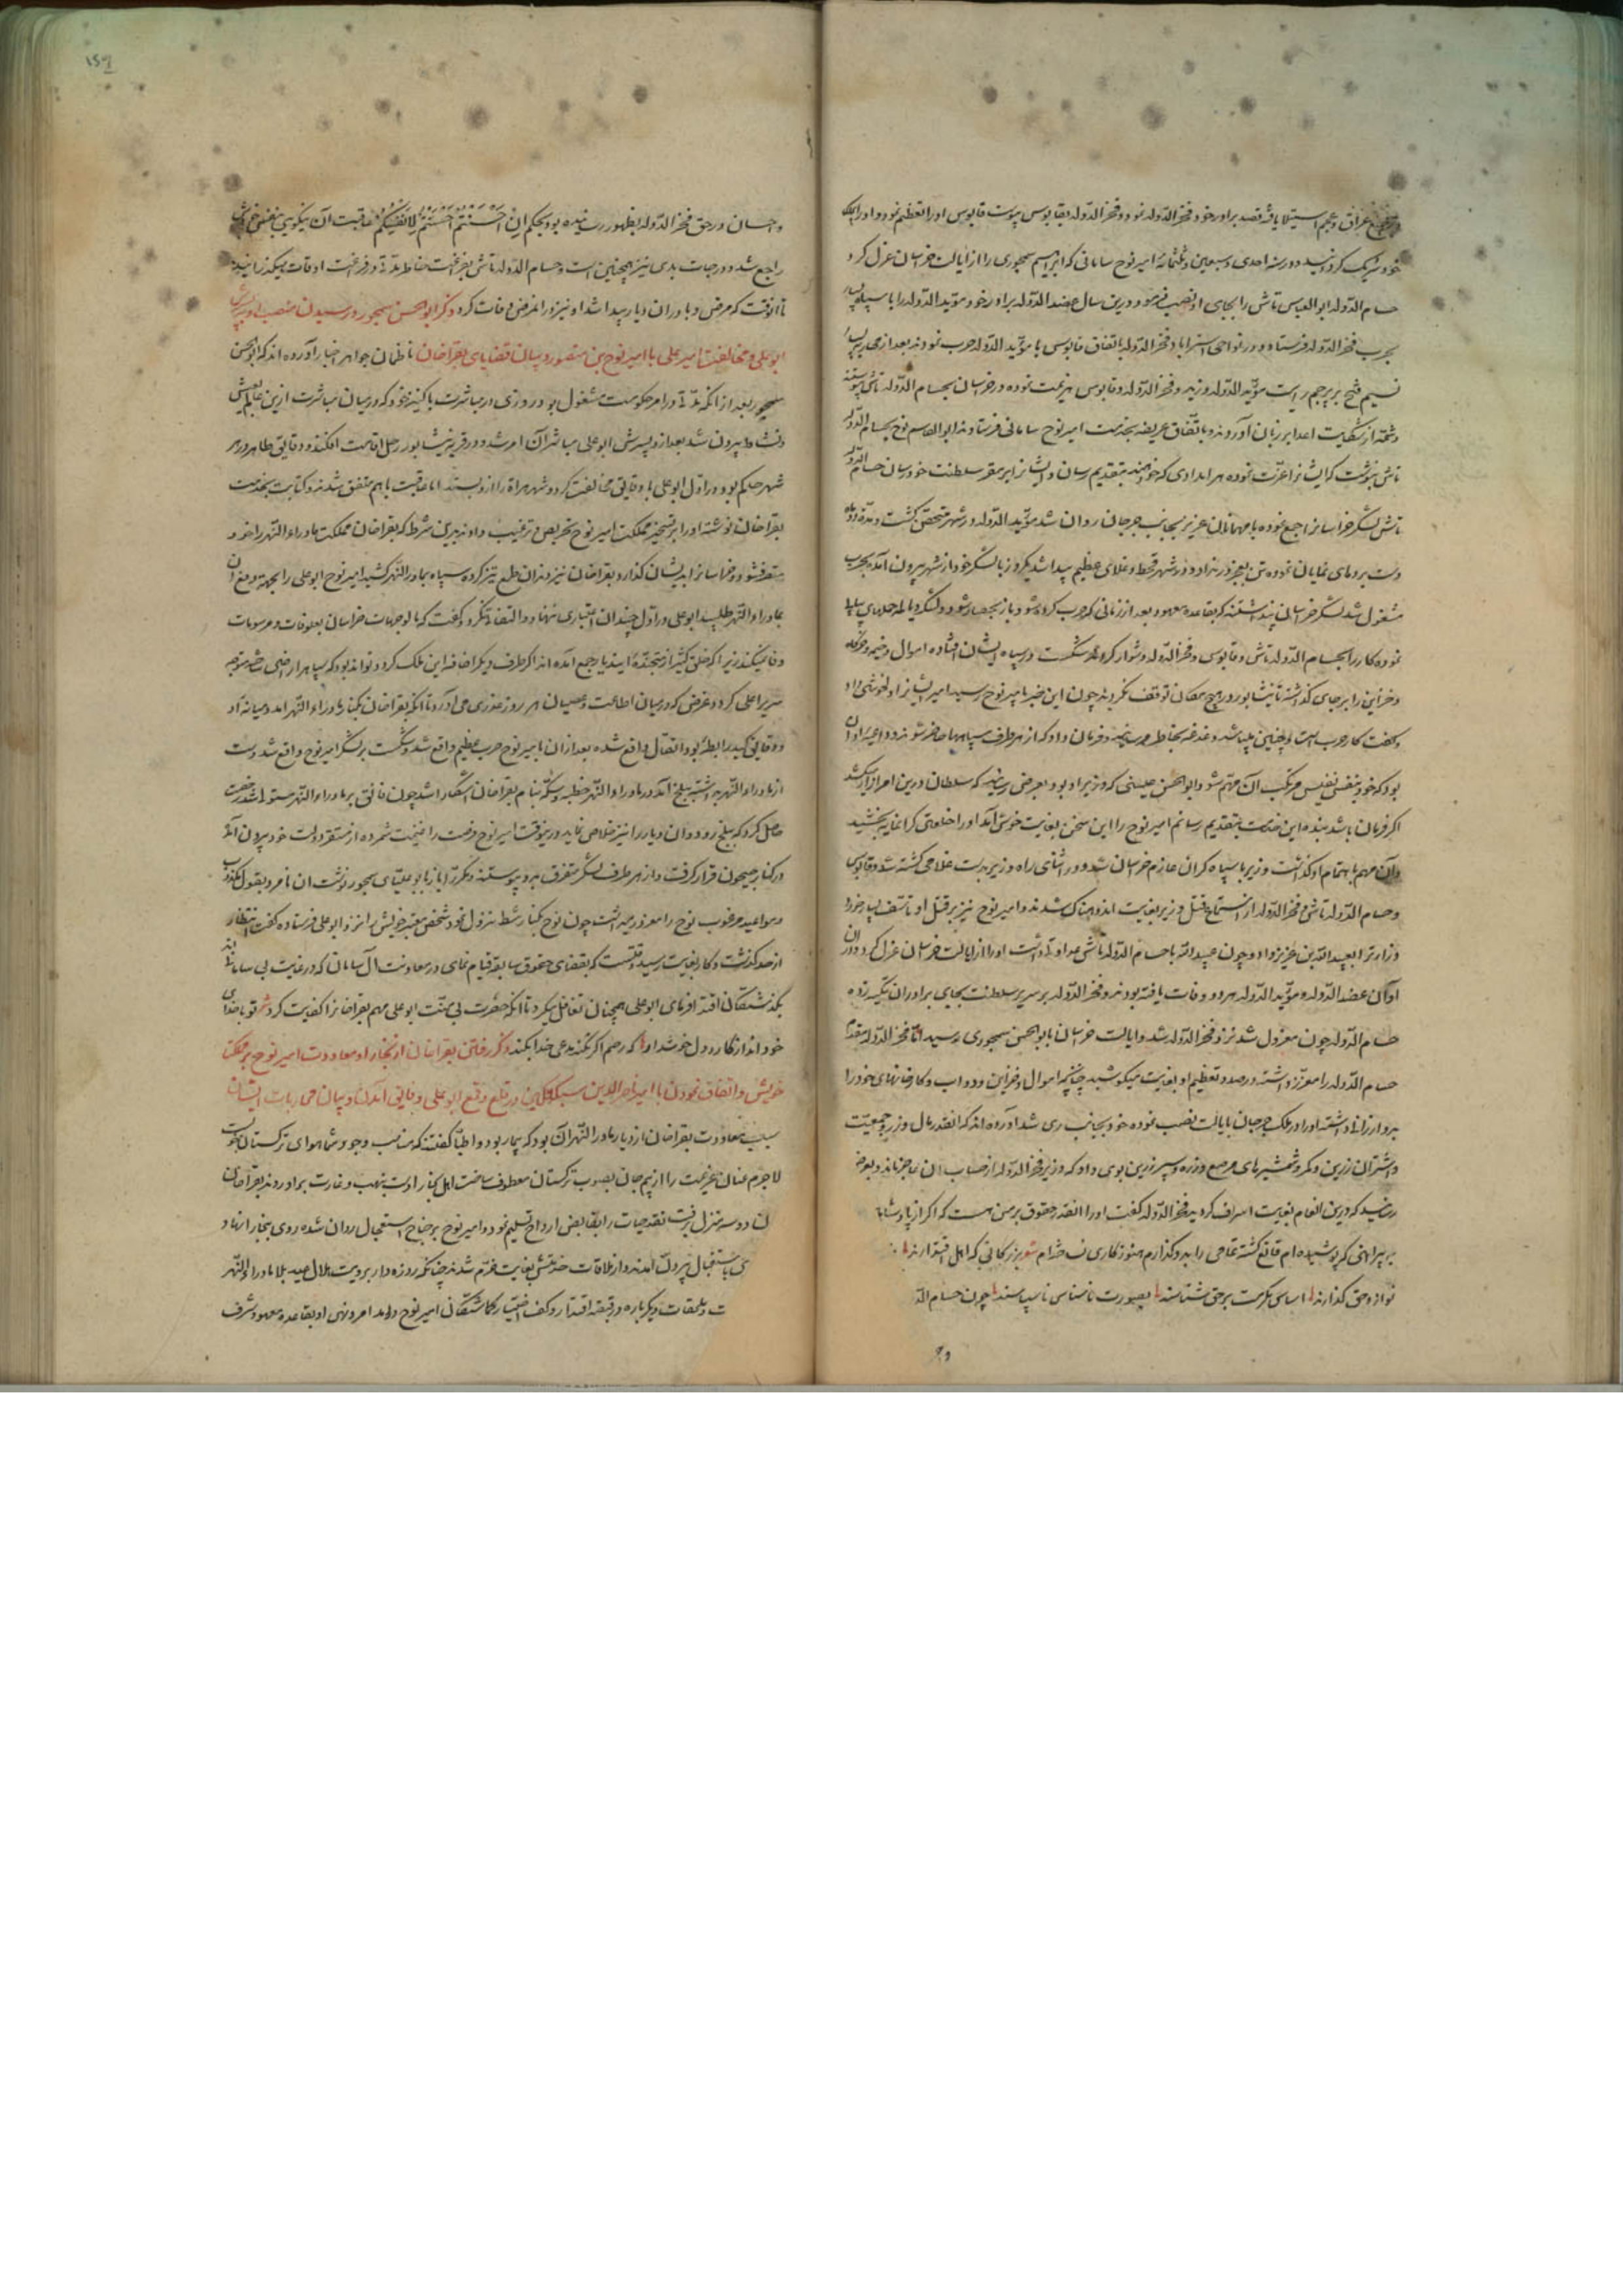 عراق و عجم استیلا یافته قصد برادر خود فخر الدّوله نمود و فخر الدّوله بقابوس پیوست قابوس او را تعظیم نمود و او را بملک
خود شریک کردانید و در سنه احدی و سبعین و ثلثمائه امیر نوح سامانی که ابراهیم سیمجوری را از ایالت خراسان عزل کرد
حسام الدّوله ابو العباس تاش را بجای او نصب فرمود و درین سال عضد الدّوله برادر خود مؤید الدّوله را با سپاه بسیار
بحرب فخر الدّوله فرستاد و در نواحی استراباد فخر الدّوله باتفاق قابوس با مؤید الدّوله حرب نمودند بعد ازین
نسیم فتح بر پرچم رایت مؤید الدّوله وزید و فخر الدّوله و قابوس هزیمت نموده در خراسان بحسام الدّوله تاش پیوستند
و شمّه از شکایت اعدا بر زبان آوردند و باتفاق عریضه بخدمت امیر نوح سامانی فرستادند ابو القاسم نوح بحسام الدّوله
تاش نوشت که ایشانرا عزّت نموده هر امدادی که خواهند بتقدیم رسان و ایشانرا بر مقر سلطنت خود رسان حسام الدّوله
تاش لشکر خراسانرا جمع نموده با مهمانان عزیز بجانب جرجان روان شد مؤید الدّوله در شهر متحصّن کشت و مدّت دو ماه
دست بردهای نمایان نموده تن بعجز در نداد و در شهر قحط و غلای عظیم پیدا شد یکروز با لشکر خود از شهر بیرون آمده بحرب
مشغول شد لشکر خراسان پنداشتند که بقاعده معهود بعد از زمانی که حرب کرده شود باز بحصار
نموده کار را بحسام الدّوله تاش و قابوس و فخر الدّوله دشوار کردند شکست در سپاه ایشان افتاده اموال و خیمه و خرکاه
و خزاین را بر جای کذاشته تا نیشابور در هیچ مکان توقف نکردند چون این خبر بامیر نوح رسید امیر ایشانرا دلخوشی داد
و کفت کار حرب است و چنین میباشد دغدغه بخاطر مرسانید و فرمان داد که از هر طرف سپاهها حاضر شوند و داعیه او آن
بود که خود بنفس نفیس مرتکب آن مهم شود ابو الحسن عیسی که وزیر او بود بعرض رسانید که سلطان درین امر ازار میکشد
اکر فرمان باشد بنده این خدمت بتقدیم رسانم امیر نوح را این سخن بغایت خوش آمد او را خلعتی کرانمایه بخشید
و آن مهم باهتمام او کذاشت وزیر با سپاه کران عازم خراسان شد و در اثنای راه وزیر بدست غلامی کشته شد و قابوس
و حسام الدّوله تاش و فخر الدّوله از استماع قتل وزیر بغایت اندوهناک شدند و امیر نوح نیز بر قتل او تاسّف بسیار خورد
وزارت را بعبید الله بن عزیز داد و چون عبید الله با حسام الدّوله تاش عداوت داشت او را از ایالت خراسان عزل کرد و در آن
اوان عضد الدّوله و مؤید الدّوله هر دو وفات یافته بودند و فخر الدّوله بر سریر سلطنت بجای برادران تکیه زده
حسام الدّوله چون معزول شد نزد فخر الدّوله شد و ایالت خراسان بابو الحسن سیمجوری رسید امّا فخر الدّوله مقدم
حسام الدّوله را معزّز داشته در صدد تعظیم او بغایت میکوشید چنانچه اموال و خزاین و دواب و کارخانهای خود را
برو ارزانی داشته او را در ملک جرجان بایالت نصب نموده خود بجانب ری شد آورده اند که انقدر مال و زر و جمعیّت
و شتران زرین و کمر و شمشیرهای مرصع و زره و سپر زرین بوی داد که وزیر فخر الدّوله از حساب ان عاجز ماند و بعرض
رسانید که درین انعام بغایت اسراف کردید فخر الدّوله کفت او را انقدر حقوق بر من هست که اکر از پادشاهی
بپیراهنی که پوشیده ام قانع کشته تمامی را بدو کذارم هنوز کاری نساخته ام شعر بزرکانی که اهل اقتدارند
نوازد حق کذارند اساس مکرمت بر حق شناسند بصورت ناشناس ناسپاسند چون حسام الدّ
و احسان در حق فخر الدّوله بظهور رسانیده بود بحکم اِنْ اَحْسَنْتُمْ اَحْسَنْتُمْ لِاَنْفُسِکُمْ عاقبت آن نیکویی بنفس
راجع شد و در جات بدی نیز همچنین است و حسام الدّوله تاش بفراغت خاطر مدّتی در فراغت اوقات میکذرانید
تا انوقت که مرض وبا در ان دیار پیدا شد او نیز در انمرض وفات کرد ذکر ابو الحسن سیمجور و رسیدن منصب او بپسرش
ابو علی و مخالفت امیر علی با امیر نوح بن منصور و بیان قضایای بغراخان ناظمان جواهر اخبار آورده اند که ابو الحسن
سیمجور بعد از انکه مدّتی در امر حکومت مشغول بود روزی در مباشرت با کنیزک خود که در میان مباشرت ازین عالم
و نشاط بیرون شد بعد ازو پسرش ابو علی مباشر آن امر شد و در قریه نیشابور رحل اقامت افکند و فایق ظاهرا در
شهر حاکم بود در اول ابو علی با فایق مخالفت کرد و شهر هراة را ازو بستد اما عاقبت با هم متفق شدند و کتابت بخدمت
بغراخان نوشته او را بر تسخیر مملکت امیر نوح تحریص و ترغیب دادند بدین شرط که بغراخان مملکت ماوراء النّهر را خود
متصرف شود و خراسانرا بدیشان کذارد بغراخان نیز دندان طمع تیز کرده سپاه بماوراء النّهر کشید امیر نوح ابو علی را بجهة دفع آن
بماوراء النّهر طلبید ابو علی در اوّل چندان اعتباری ننهاد و التفات نکرد و کفت که مالوجهات خراسان بعلوفات و مرسومات
وفا نمیکند زیرا که خلق کثیر از متجنّده اینجا جمع آمده اند اکر طرف دیکر اضافه این ملک کردد تواند بود که سپاه
سریر اعلی کردد و غرض که در میان اطاعت و عصیان هر روز عذری می آورد تا انکه بغراخان بکنار ماوراء النّهر آمد و میانه او
و فایق که بدرابطهٔ بود اتفاق واقع شده بعد از ان با امیر نوح حرب عظیم واقع شد و شکست بر لشکر امیر نوح واقع شد دست
از ماوراء النّهر داشته ببلخ آمد در ماوراء النّهر خطبه و سکّه بنام بغراخان آشکارا شد چون فایق بر ماوراء النّهر مستولی شد رخصت
حاصل کرد که ببلخ رود و ان دیار را نیز خلاصی نماید درینوقت امیر نوح فرصت را غنیمت شمرده از مستقر دولت خود بیرون آمد
در کنار جیحون قرار کرفت و از هر طرف لشکر متفرق بدو پیوستند و مکرّر ایلچیان بابو علی سیمجور نوشت ان نامرد بقول کذب
و مواعید مرغوب نوح را مغرور میداشت چون نوح بکنار شط نزول نمود شخص معتبر خویش را نزد ابو علی فرستاده کفت انتظار
از حد کذشت و کار بغایت رسید وقتست که بقضای حقوق سابقه قیام نمای در معاونت آل سامان که در غایت بی سامانی اند
بکذشتکان اقتدا نمای ابو علی همچنان تغافل میکرد تا انکه حضرت بی منّت ابو علی مهم بغراخانرا کفایت کرد شعر تو با خدای
خود انداز کار و دل خوش دار که رحم اکر نکند مدعی خدا بکند ذکر رفتن بغراخان از بخارا و معاودت امیر نوح بر ممکن
خویش و اتفاق نمودن با امیر ناصر الدین سبکتکین در قلع و قمع ابو علی و فایق اندک و بیان محاربات ایشان
سبب معاودت بغراخان از دیار ماوراء النّهر آن بود که بیمار بود و اطبّا کفتند که مناسب وجود شما هوای ترکستان
لاجرم عنان عزیمت را از بیم جان بصوب ترکستان معطوف ساخت اهل بخارا دست بنهب و غارت براوردند بغراخان
ان دو سه منزل برفت نقد حیات را بقابض ارواح تسلیم نمود و امیر نوح بر جناح استعجال روان شده روی بخارا نهاد
باستقبال بیرون آمدند و از ملاقات خدمتش بغایت خرّم شدند چنانکه روزه دار برویت هلال عید بلاد ماوراء النّهر
و ملحقات دیکر باره در قبضه اقتدار و کف اختیار کماشتکان امیر نوح درامد امر و نهی او بقاعده معهود شرف